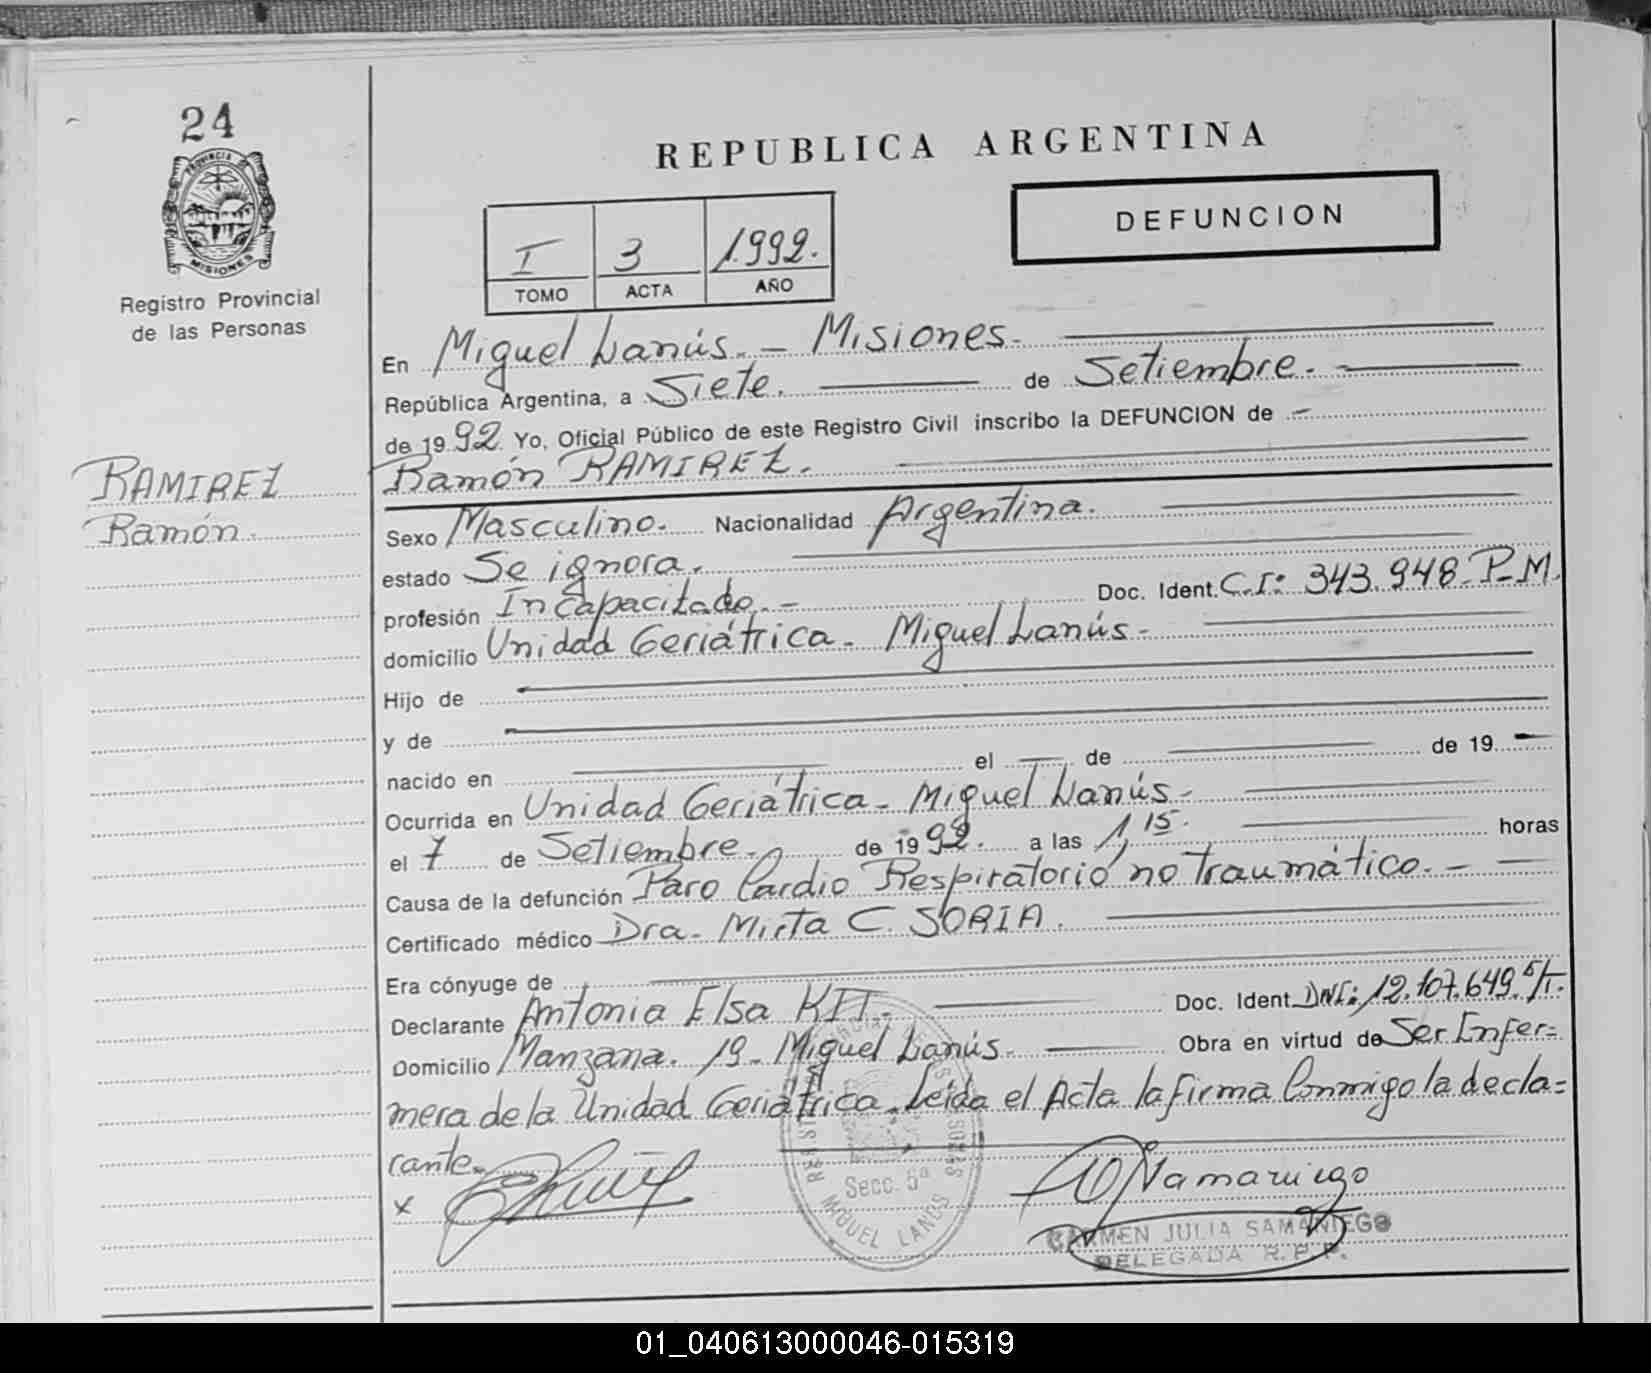 24
PROVINCIA DE
MISIONES
Registro Provincial
de las Personas
RAMIREZ
Ramón.
REPUBLICA ARGENTINA
DEFUNCION
I 3 1.992.
TOMO ACTA AÑO
En Miguel Lanús. - Misiones.
República Argentina, a Siete. de Setiembre.
de 1992. Yo, Oficial Público de este Registro Civil inscribo la DEFUNCION de -
Ramón RAMIREZ.
Sexo Masculino. Nacionalidad Argentina.
estado Se ignora.
profesión Incapacitado. - Doc. Ident. C.I: 343.948-P-M.
domicilio Unidad Geriátrica - Miguel Lanús -
Hijo de
y de
nacido en el de de 19
Ocurrida en Unidad Geriátrica - Miguel Lanús -
el 7 de Setiembre. de 1992. a las 1,15. horas
Causa de la defunción Paro Cardio Respiratorio no traumático. -
Certificado médico Dra. Mirta C. SORIA.
Era cónyuge de
Declarante Antonia Elsa Doc. Ident. DNI: 12.107.649
Domicilio Manzana. 19 - Miguel Lanús. Obra en virtud de Ser Enfer=
mera de la Unidad Geriátrica. Leída el Acta la firma Conmigo la decla=
rante.
x
Secc. 5ª
MIGUEL LANUS
CARMEN JULIA SAMANIEGO
DELEGADA R.P.P.
01_040613000046-015319